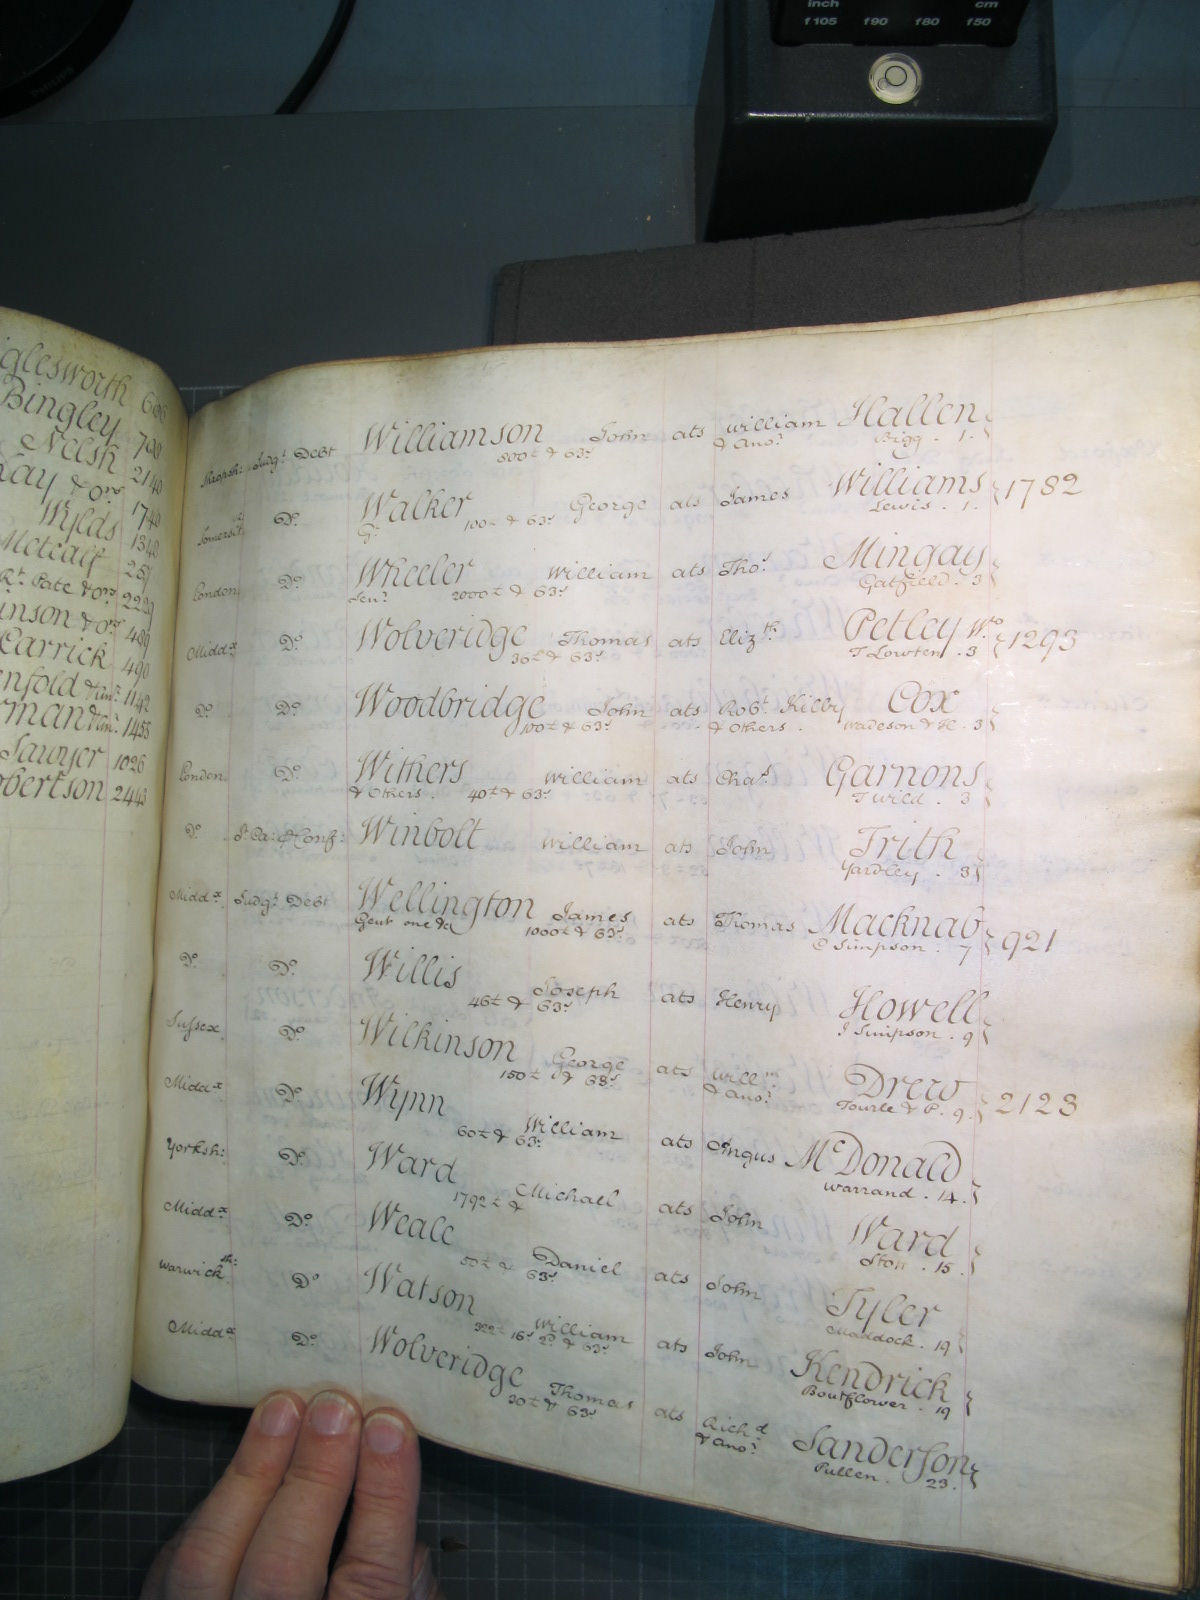 inch cm
f105 f90 f80 f50
PHILIPS
glesworth 606
Bingley 700
Nelsk 2140
Kay & ors 1740
Wylds 1340
Metcalf 267
Rt. Pate & ors 2229
inson & ors 489
Carrick 490
enfold & anr. 1142
man & anr. 1455
Sawyer 1026
obertson 2443
Shropsh: Judgt. Debt Williamson John ats William Hallen
800£ & 63s & Anor. Bigg . 1.
Somerset Do. Walker George ats James Williams } 1782
G: 100£ & 63s Lewis . 1.
London Do. Wheeler William ats Thos. Mingay
Senr. 2000£ & 63s Gatfield . 3
Middx Do. Wolveridge Thomas ats Elizth Petley Wo } 1293
36£ & 63s T Lowten . 3
Do. Do. Woodbridge John ats Robt. Kilby Cox
100£ & 63s & Others . Wadeson & H . 3
London. Do. Withers William ats Chas. Garnons
& Others . 40£ & 63s T Wild . 3
Do. Winbolt William ats John Frith
Yardley . 3
Middx. Judgt. Debt Wellington James ats Thomas Macknab } 921
Gent one &c 1000£ & 63s Simpson . 7
Do. Do. Willis Joseph ats Henry Howell
46£ & 63s J Simpson . 9
Sussex Do. Wilkinson George ats Willm. Drew } 2123
150£ & 63s & Anor. Tourle & P. 9.
Middx. Do. Wynn William ats Angus McDonald
60£ & 63s Warrand . 14.
Yorksh: Do. Ward Michael ats John Ward
1792£ & 15.
Middx. Do. Weale Daniel ats John Tyler
50£ & 63s Maddock . 19
Warwicksh: Do. Watson William ats John Kendrick
16s 2d & 63s Boutflower . 19
Middx Do. Wolveridge Thomas ats Richd. Sanderson
30£ & 63s & Anor. Pullen . 23.